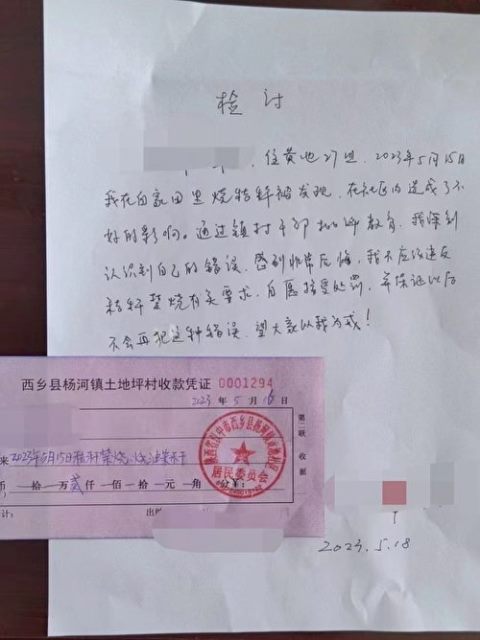 检讨
住黄池27组，2023年5月15日
我在自家田里烧秸秆被发现，在社区内造成了不
好的影响。通过镇村干部批评教育，我深刻
认识到自己的错误，感到非常后悔，我不应该违反
秸秆禁烧有关要求，自愿接受处罚，并保证以后
不会再犯这种错误，望大家以我为戒！
西乡县杨河镇土地坪村收款凭证 0001294
2023年5月16日
来 2023年5月15日秸秆禁烧
币 拾 万 贰 仟 佰 拾 元 角 分 ￥：
计： 出
第二联 收据
居民委员会
2023.5.18